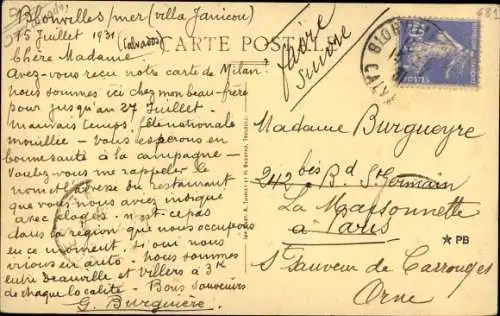 Blonvilles/mer (villa Janicou)
15 Juillet 1931 (Calvados)
Chère Madame.
Avez-vous reçu notre carte de Milan.
Nous sommes ici chez mon beau-frère
pour jusqu'au 27 Juillet.
Mauvais temps. fête nationale
mouillée - Vous espérons en
bonne santé à la campagne -
Voulez-vous me rappeler le
nom et adresse du restaurant
que vous nous aviez indiqué
avec éloges. n'est-ce pas
dans la région que nous occupons
en ce moment. Si oui nous
irions en auto. Nous sommes
entre Deauville et Villers à 3K
de chaque localité - Bons Souvenirs
G. Burguière.
CARTE POSTALE
faire
suivre
BLONVI
CALVA
POSTES
Madame Burgueyre
242 bis Bd St Germain
La Maisonnette
à Paris
St Sauveur de Carrouges
Orne
★PB